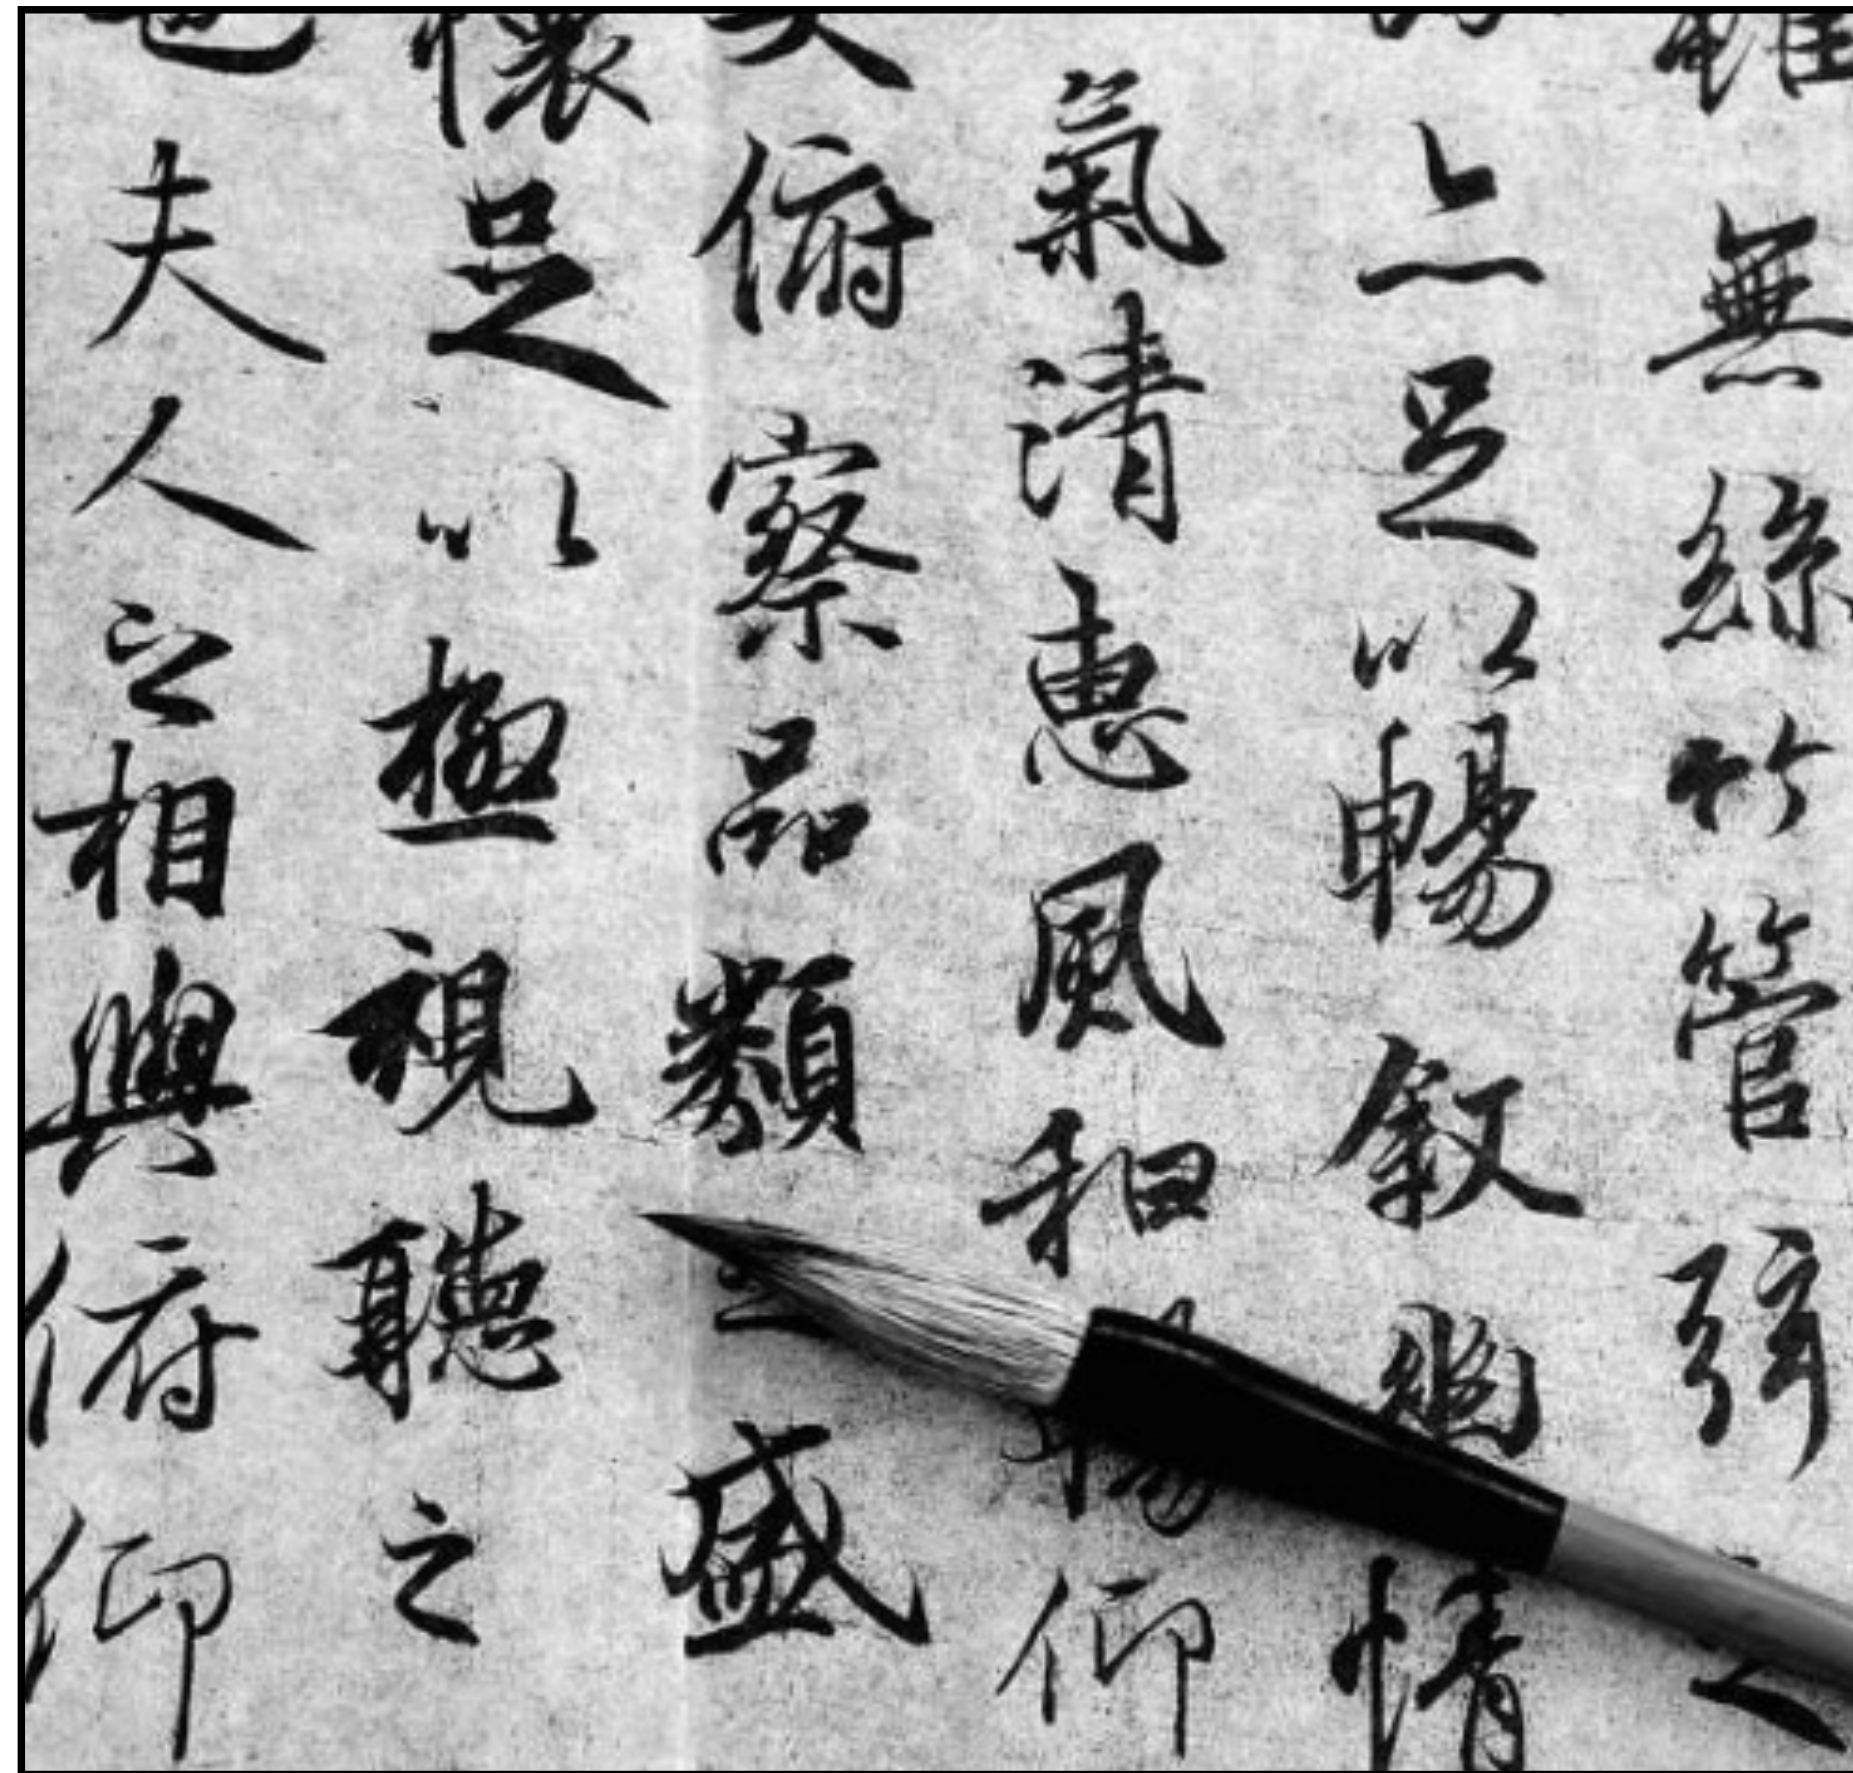 雖無絲竹管弦之
亦足以暢叙幽情
氣清惠風和暢仰
大俯察品類之盛
懷足以極視聽之
也夫人之相與俯仰